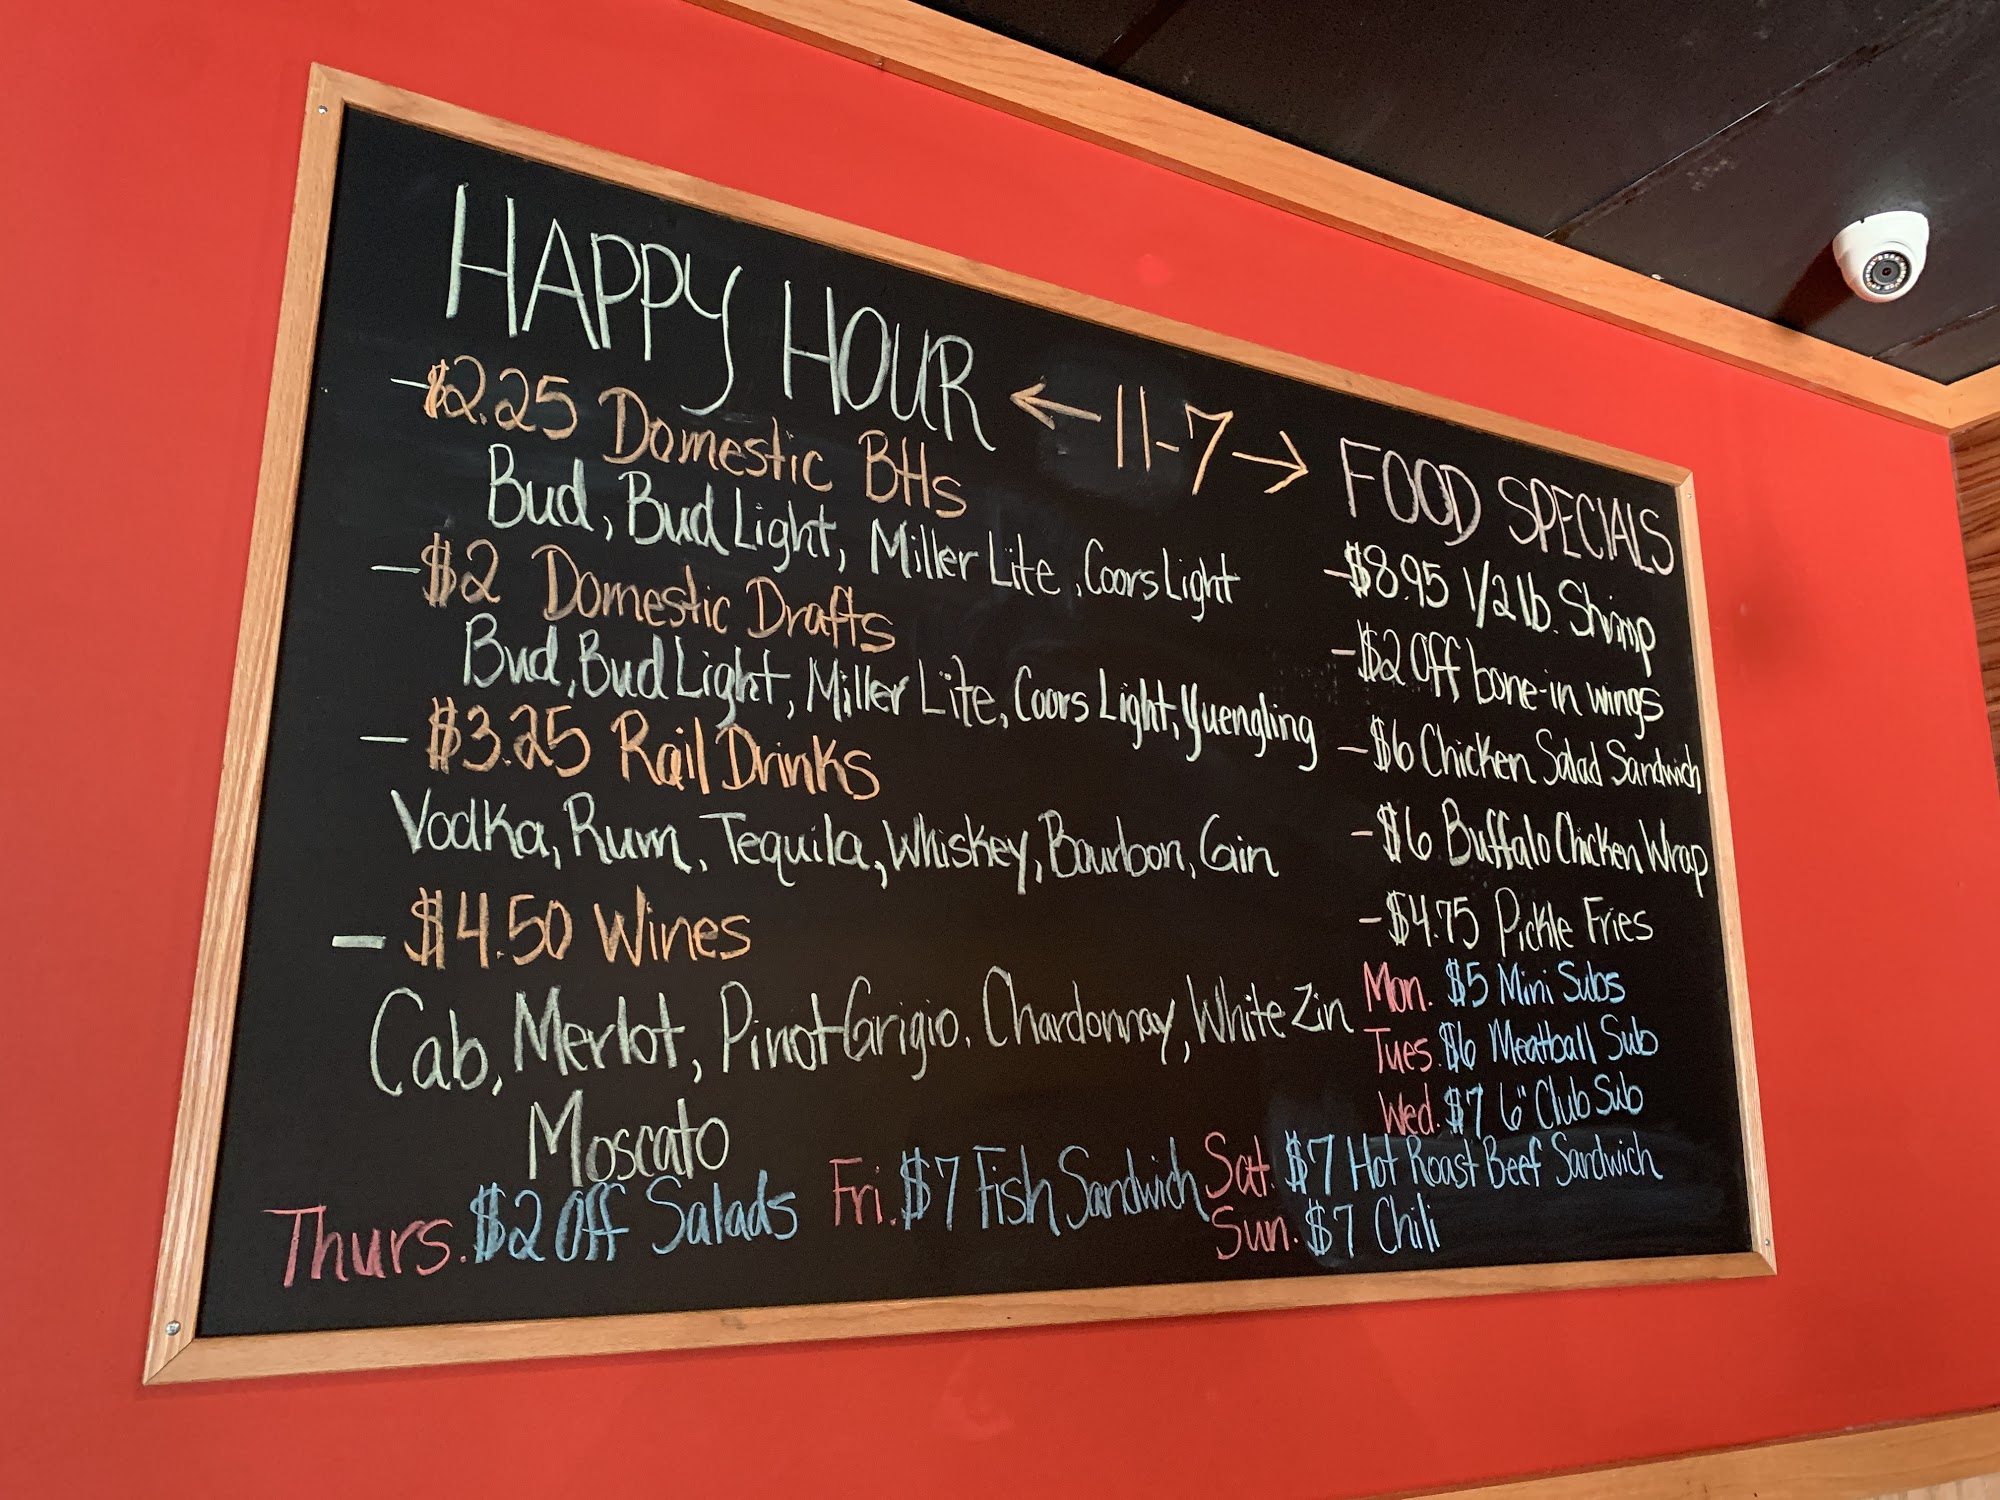 HAPPY HOUR ← 11-7 → FOOD SPECIALS
- $2.25 Domestic Btls
Bud, Bud Light, Miller Lite, Coors Light
- $2 Domestic Drafts
Bud, Bud Light, Miller Lite, Coors Light, Yuengling
- $3.25 Rail Drinks
Vodka, Rum, Tequila, Whiskey, Bourbon, Gin
- $4.50 Wines
Cab, Merlot, Pinot Grigio, Chardonnay, White Zin
Moscato
- $8.95 1/2 lb. Shrimp
- $2 Off bone-in wings
- $6 Chicken Salad Sandwich
- $6 Buffalo Chicken Wrap
- $4.75 Pickle Fries
Mon. $5 Mini Subs
Tues. $6 Meatball Sub
Wed. $7 6" Club Sub
Thurs. $2 Off Salads
Fri. $7 Fish Sandwich
Sat. $7 Hot Roast Beef Sandwich
Sun. $7 Chili